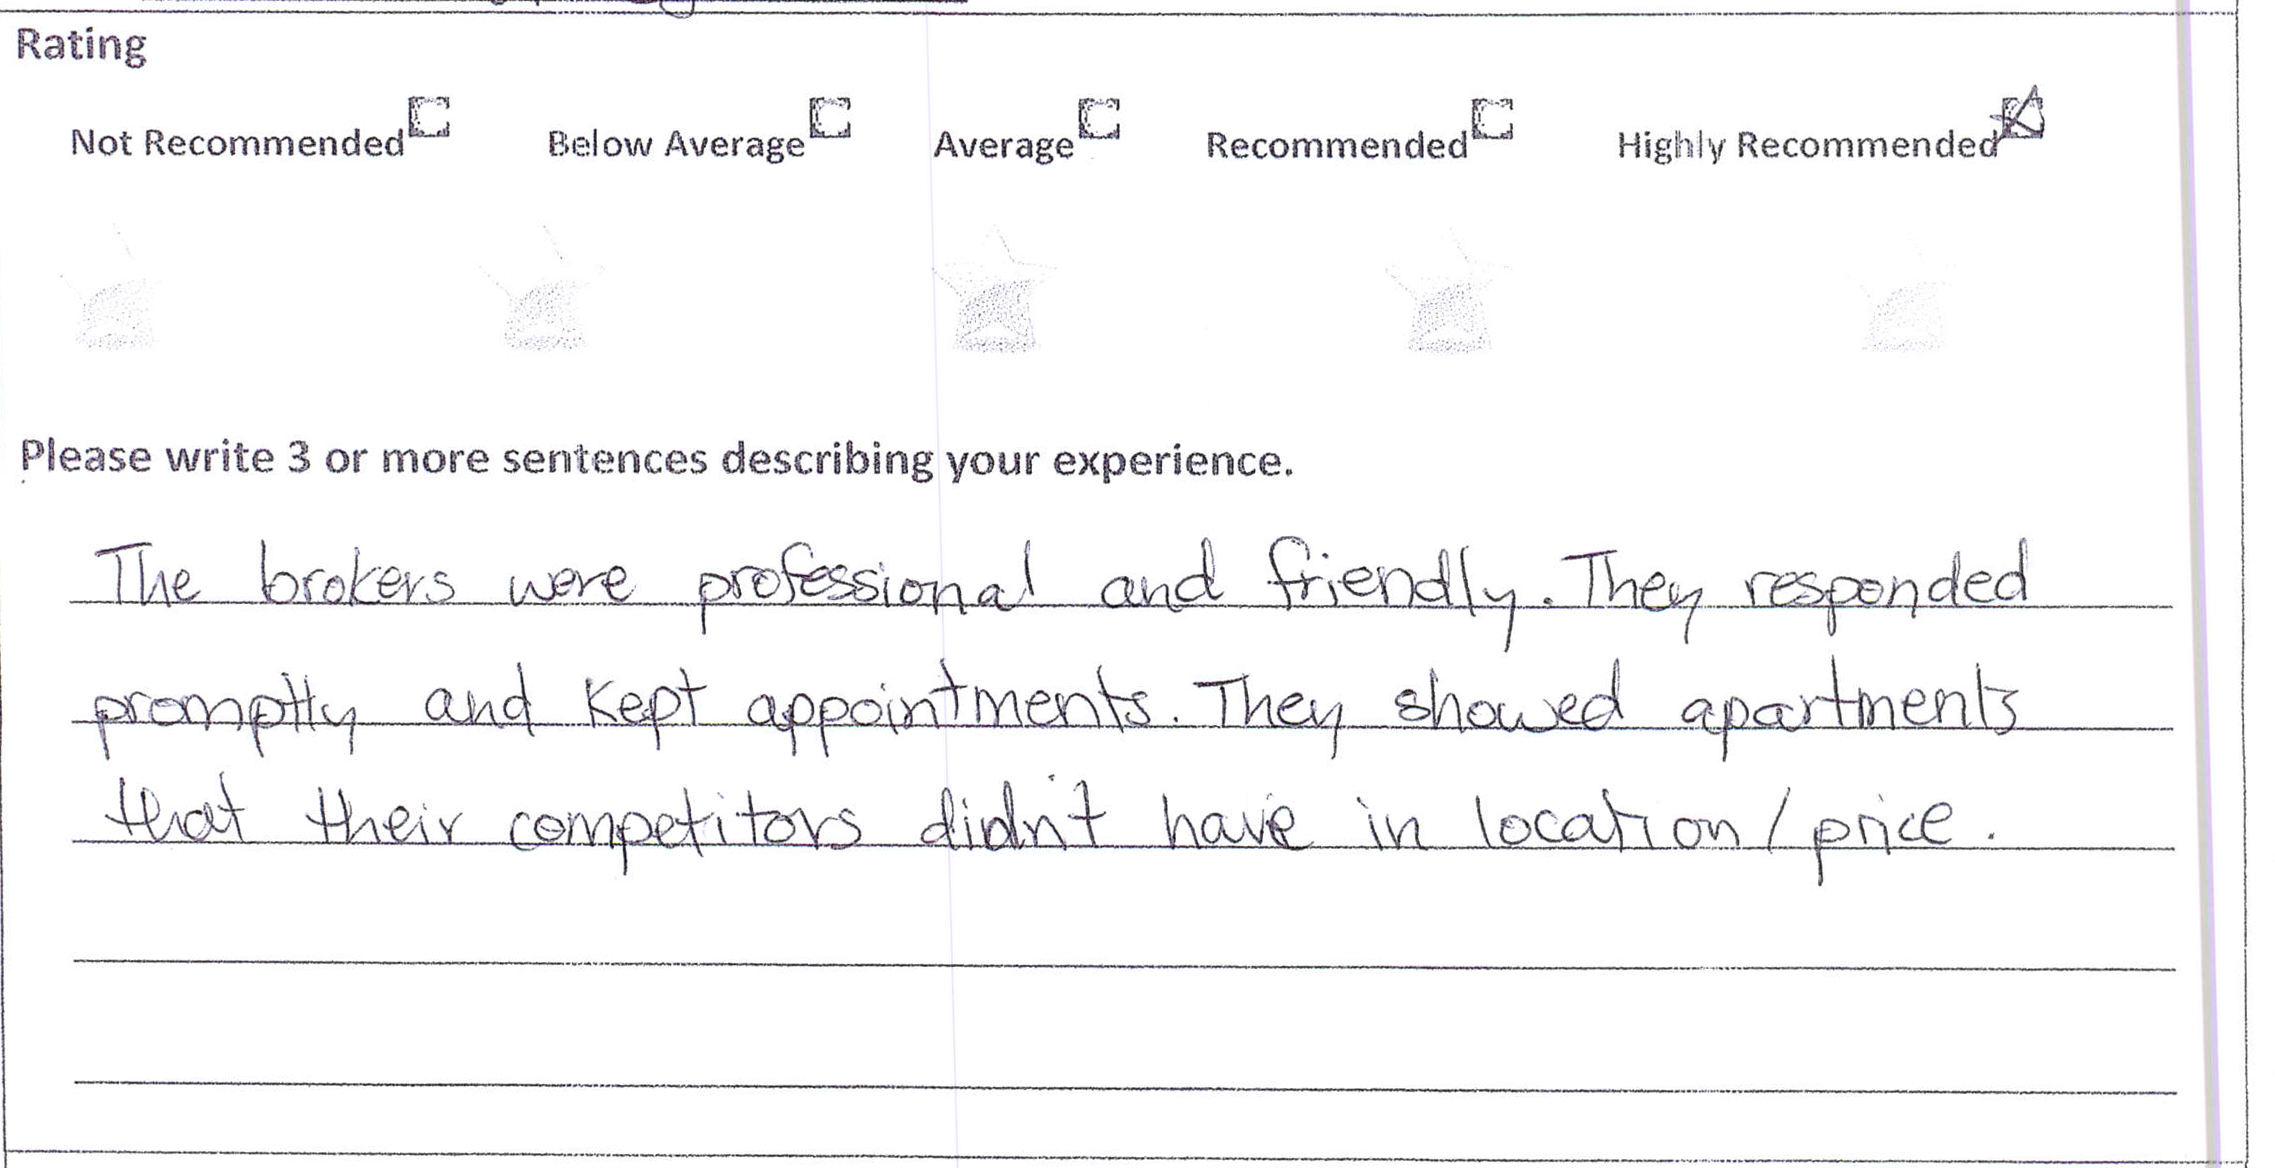 Rating
Not Recommended Below Average Average Recommended Highly Recommended
Please write 3 or more sentences describing your experience.
The brokers were professional and friendly. They responded
promptly and kept appointments. They showed apartments
that their competitors didn't have in location/price.